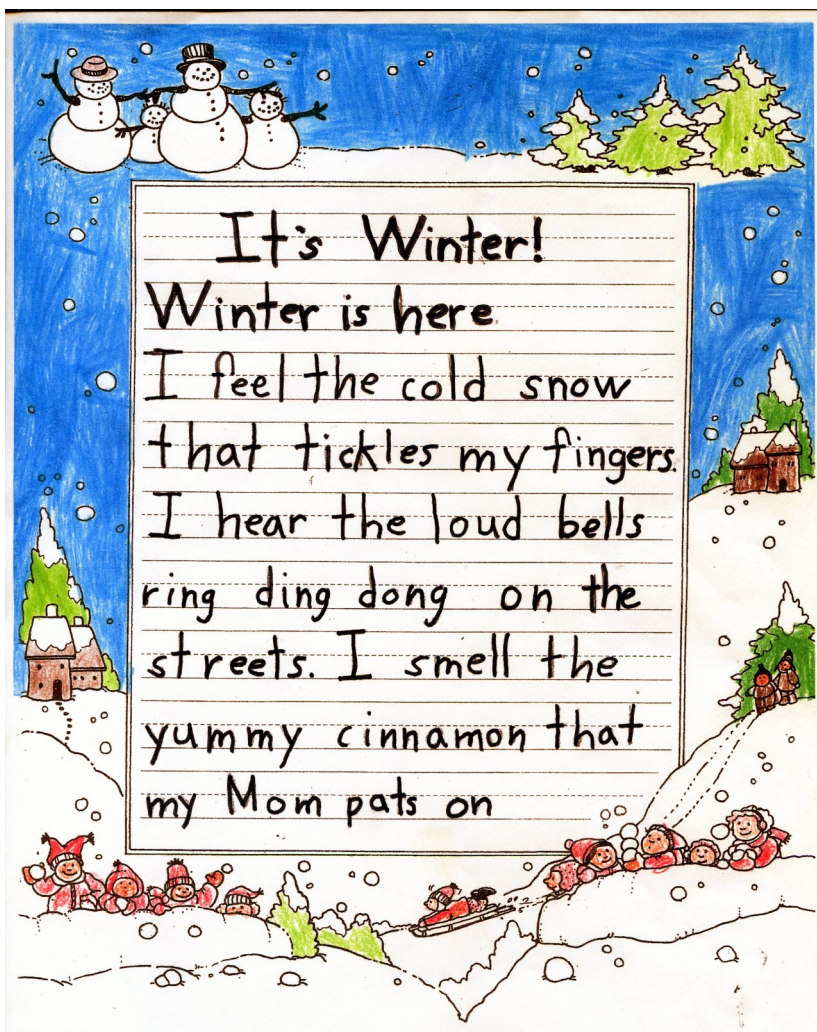 It's Winter!
Winter is here
I feel the cold snow
that tickles my fingers.
I hear the loud bells
ring ding dong on the
streets. I smell the
yummy cinnamon that
my Mom pats on